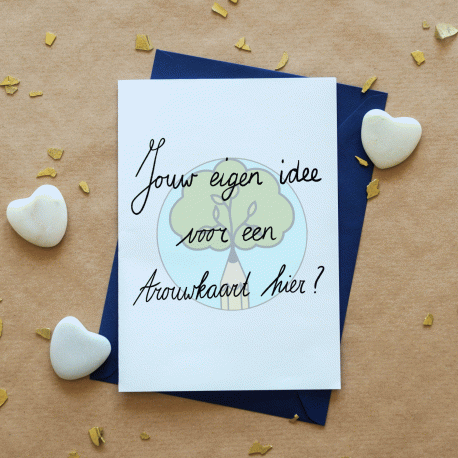 Jouw eigen idee
voor een
Trouwkaart hier?